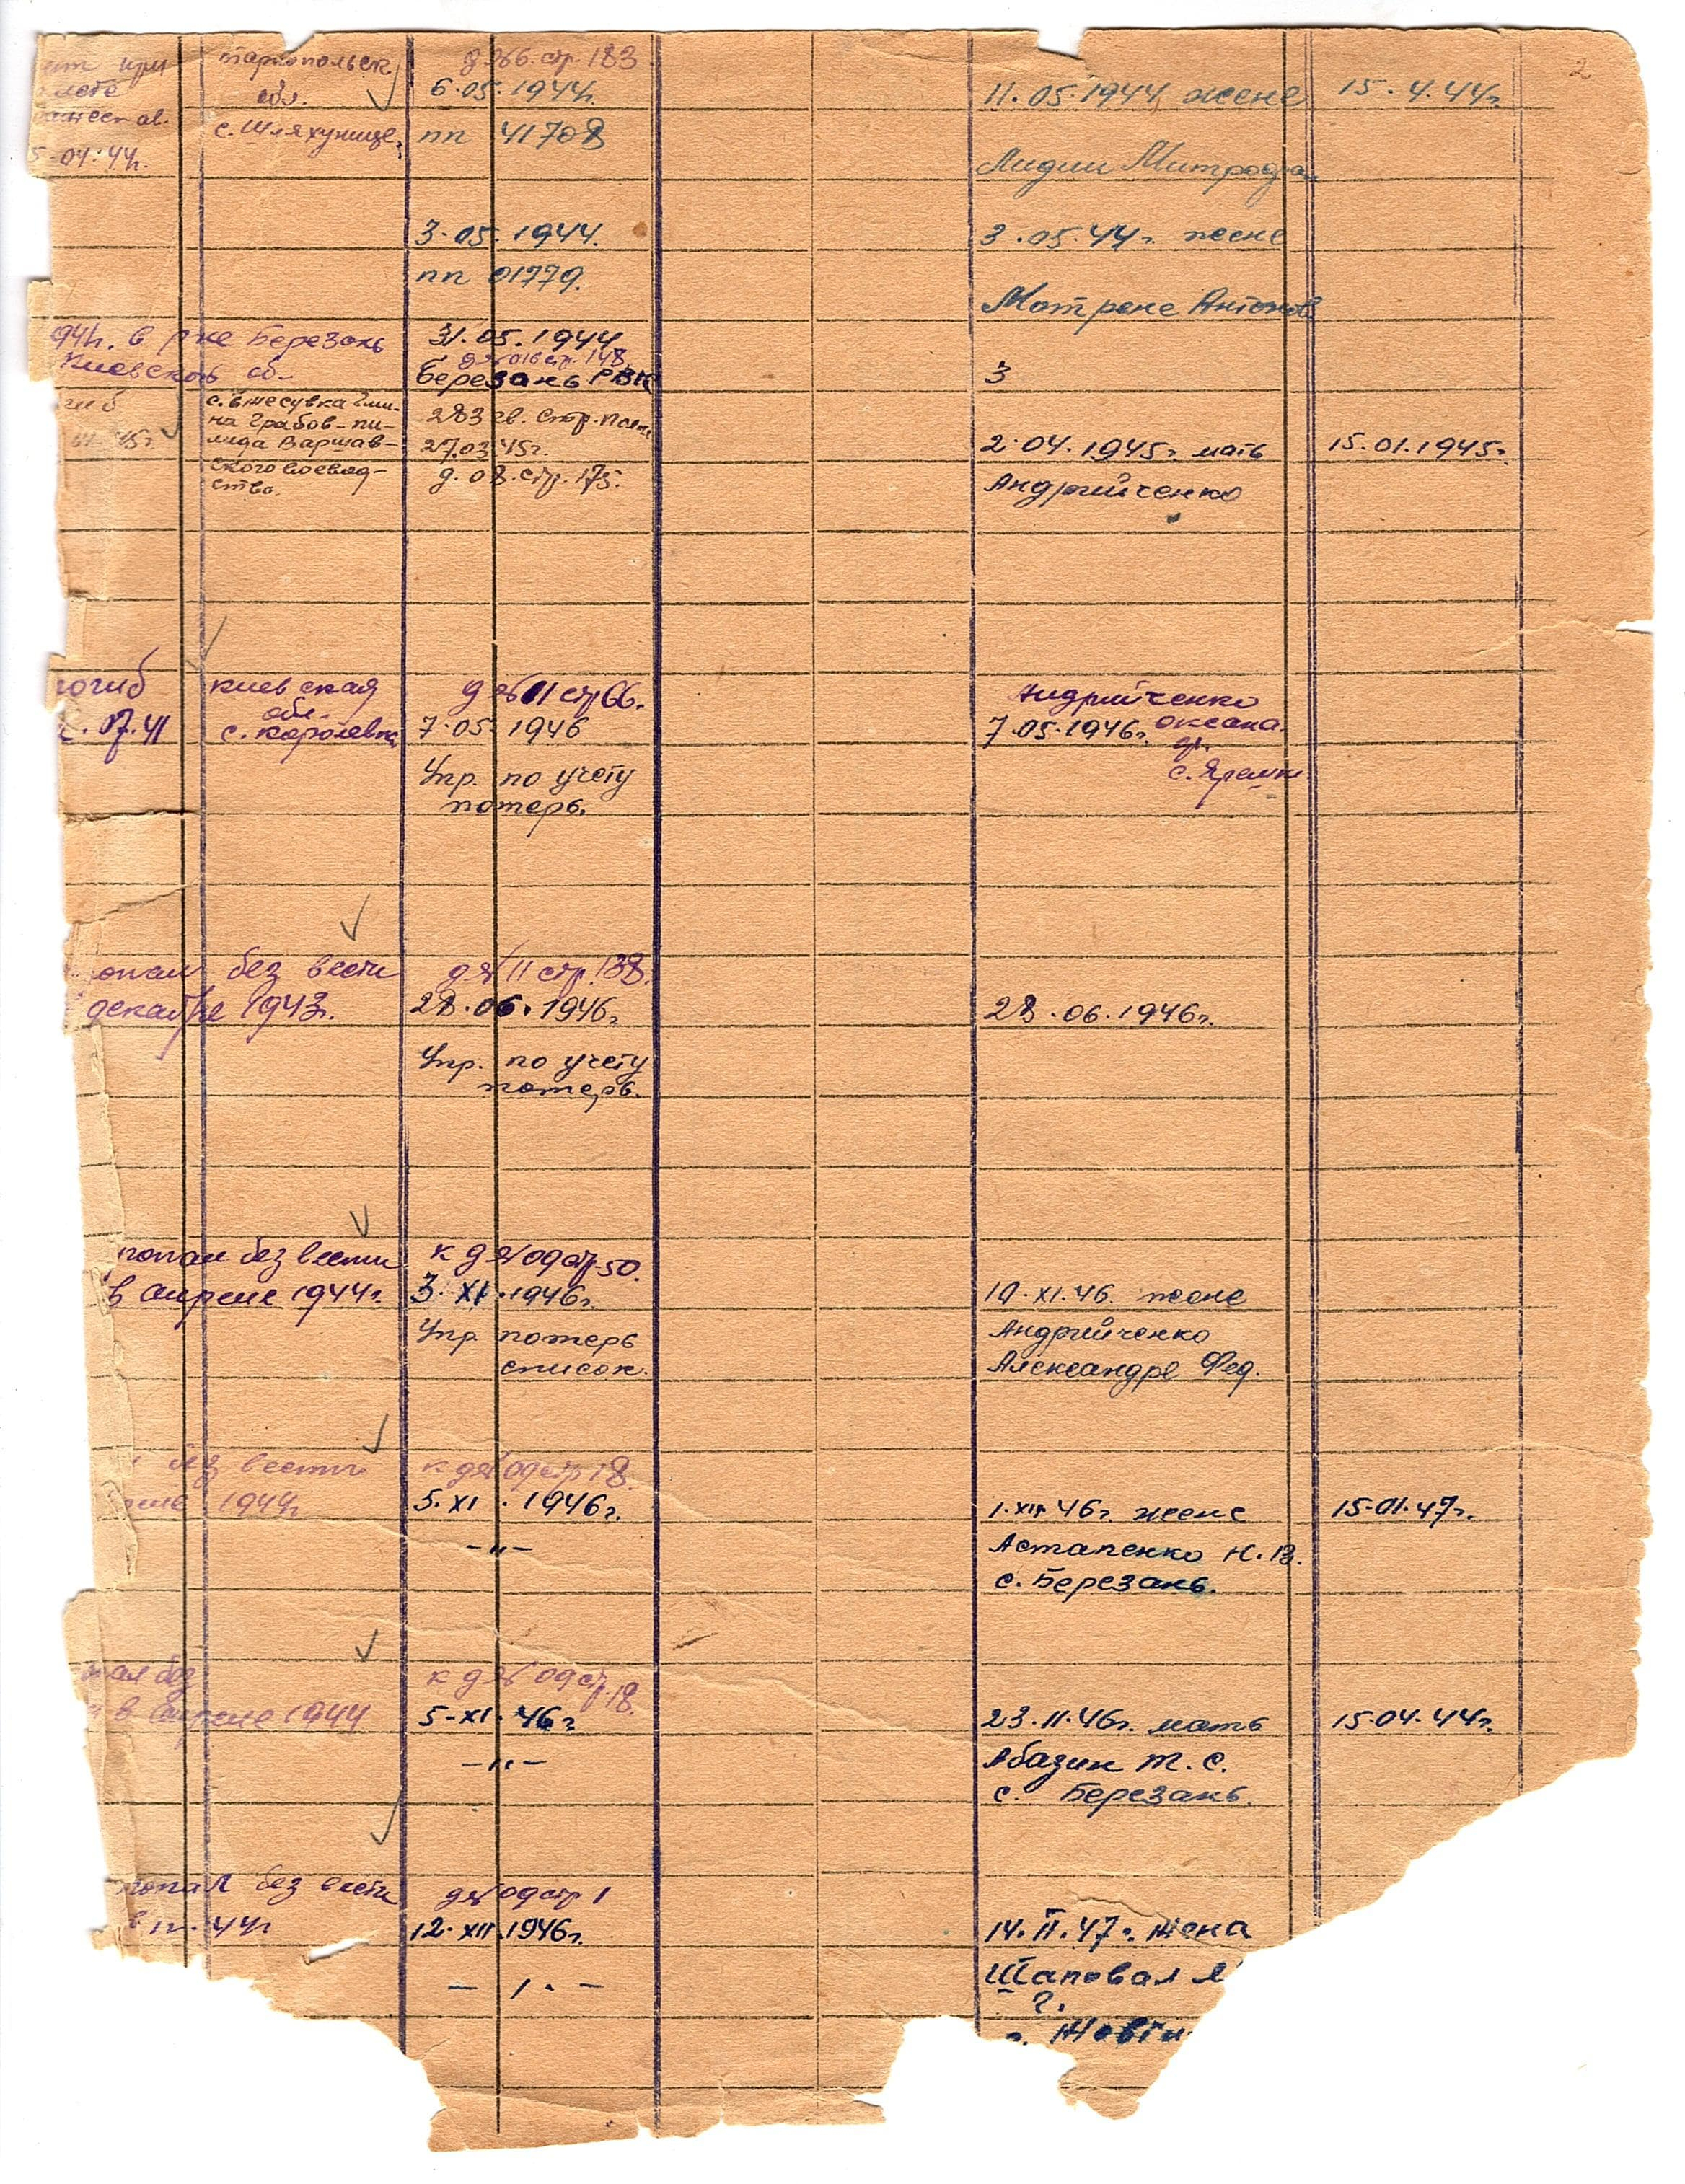 2
тарнопольск
обл.
с. Шляхунице.
5-04.44г.
д №66. стр. 183
6.05.1944г.
пп 41708
11.05.1944 жене
Лидии Митрофа
15.4.44г.
3.05.1944.
пп 01779.
3.05.44г. жене
Мотрене Антонов
в р-не Березань
Киевской об.
31.05.1944
стр. 148
Березань РВК
3
45г
на Грабов-пи-
лица Варшав-
ского воевод-
ство.
283 гв. стр. полк
27.03.45г.
д. 08. стр. 175.
2.04.1945г. мать
Андрийченко
15.01.1945г.
погиб
.07.41
киевская
обл.
с. королевка
д №11 стр 66.
7.05.1946
Упр. по учету
потерь.
Андрийченко
7.05.1946г. оксана
с. Яреши
опал без вести
декабре 1943г.
д № 11 стр. 138.
28.06.1946г.
Упр. по учету
потерь.
28.06.1946г.
пропал без вести
в апреле 1944г.
к д № 09 стр 50.
3.XI.1946г.
Упр. потерь
список.
10.XI.46. жене
Андрийченко
Александре Фед.
без вести
1944г
к д № 09 стр 18.
5.XI.1946г.
-"-
1.XII.46г. жене
Астапенко Н.В.
с. Березань.
15.01.47г.
ал без
в апреле 1944
к д № 09 стр. 18.
5-XI.46г
-"-
23.11.46г. мать
Абазин Т.С.
с. Березань.
15.04.44г.
пропал без вести
44г
д № 09 стр 1
12.XII.1946г.
-"-
14.II.47г. жена
Шаповал
?.